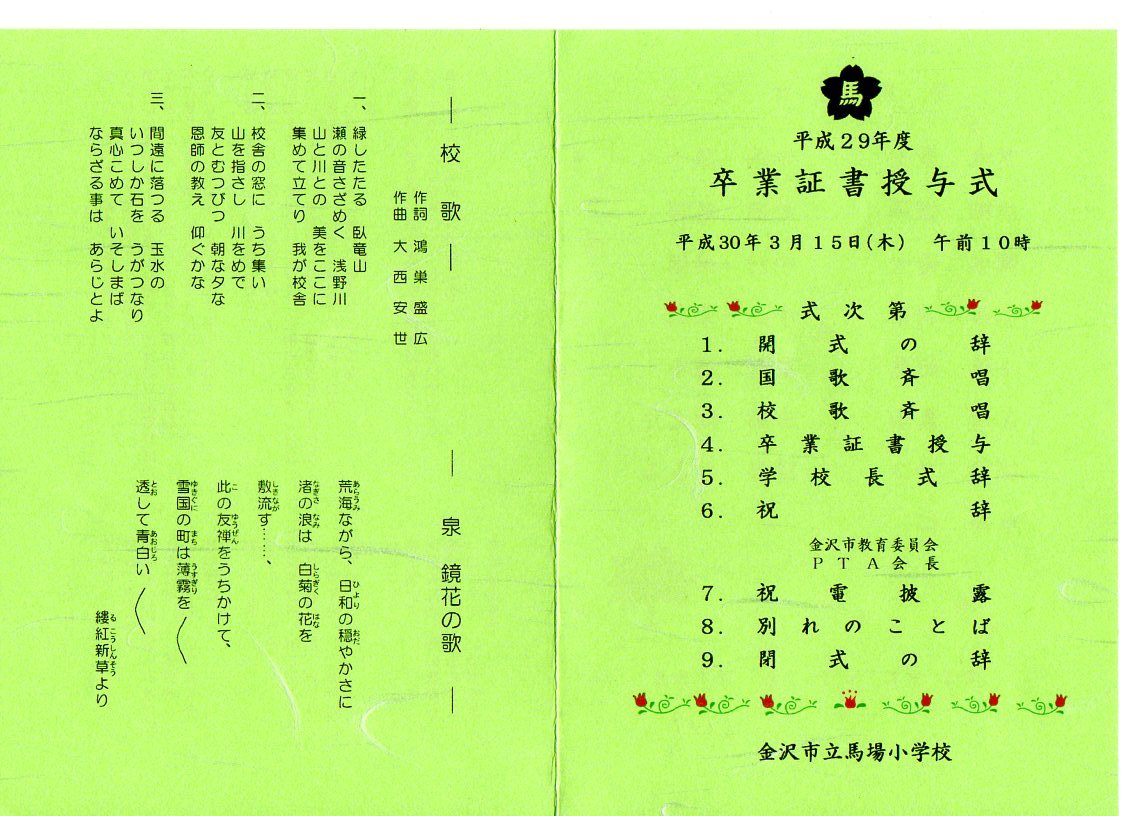 馬
平成29年度
卒業証書授与式
平成30年3月15日(木) 午前10時
式次第
1. 開式の辞
2. 国歌斉唱
3. 校歌斉唱
4. 卒業証書授与
5. 学校長式辞
6. 祝辞
金沢市教育委員会
PTA会長
7. 祝電披露
8. 別れのことば
9. 閉式の辞
金沢市立馬場小学校
― 校歌 ―
作詞 鴻巣盛広
作曲 大西安世
一、緑したたる 臥竜山
瀬の音さざめく 浅野川
山と川との 美をここに
集めて立てり 我が校舎
二、校舎の窓に うち集い
山を指さし 川をめで
友とむつびつ 朝な夕な
恩師の教え 仰ぐかな
三、間遠に落つる 玉水の
いつしか石を うがつなり
真心こめて いそしまば
ならざる事は あらじとよ
― 泉 鏡花の歌 ―
荒海ながら、日和の穏やかさに
あらうみ ひより おだ
渚の浪は 白菊の花を
なぎさ なみ しらぎく はな
敷流す……、
しきなが
此の友禅をうちかけて、
こ ゆうぜん
雪国の町は薄霧を
ゆきぐに まち うすぎり
透して青白い
とお あおじろ
縷紅新草より
る こうしんそう